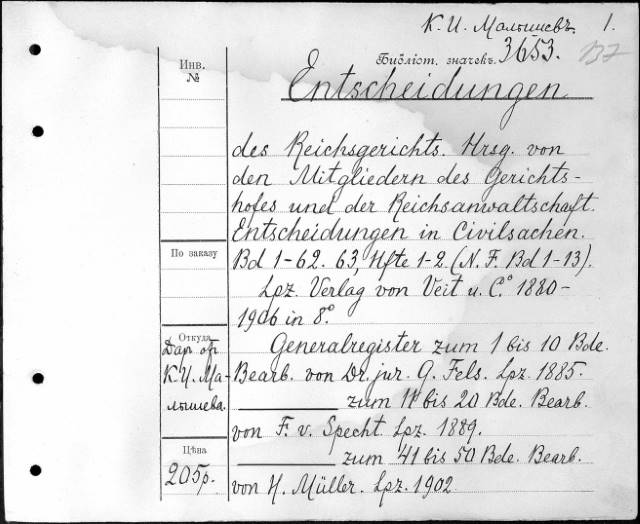 К. И. Малышевъ. 1.
Библіот. значекъ 3653.
137
Инв.
№
Entscheidungen
des Reichsgerichts. Hrsg. von
den Mitgliedern des Gerichts-
hofes und der Reichsanwaltschaft.
Entscheidungen in Civilsachen.
По заказу
Bd 1-62. 63, Hfte 1-2. (N. F. Bd 1-13).
Lpz. Verlag von Veit u. C.° 1880-
1906 in 8.°
Откуда
Даръ отъ
К. И. Ма-
лышева
Generalregister zum 1 bis 10 Bde.
Bearb. von Dr. jur. G. Fels. Lpz. 1885.
zum 11 bis 20 Bde. Bearb.
von F. v. Specht. Lpz. 1889.
Цѣна
205р.
zum 41 bis 50 Bde. Bearb.
von H. Müller. Lpz. 1902